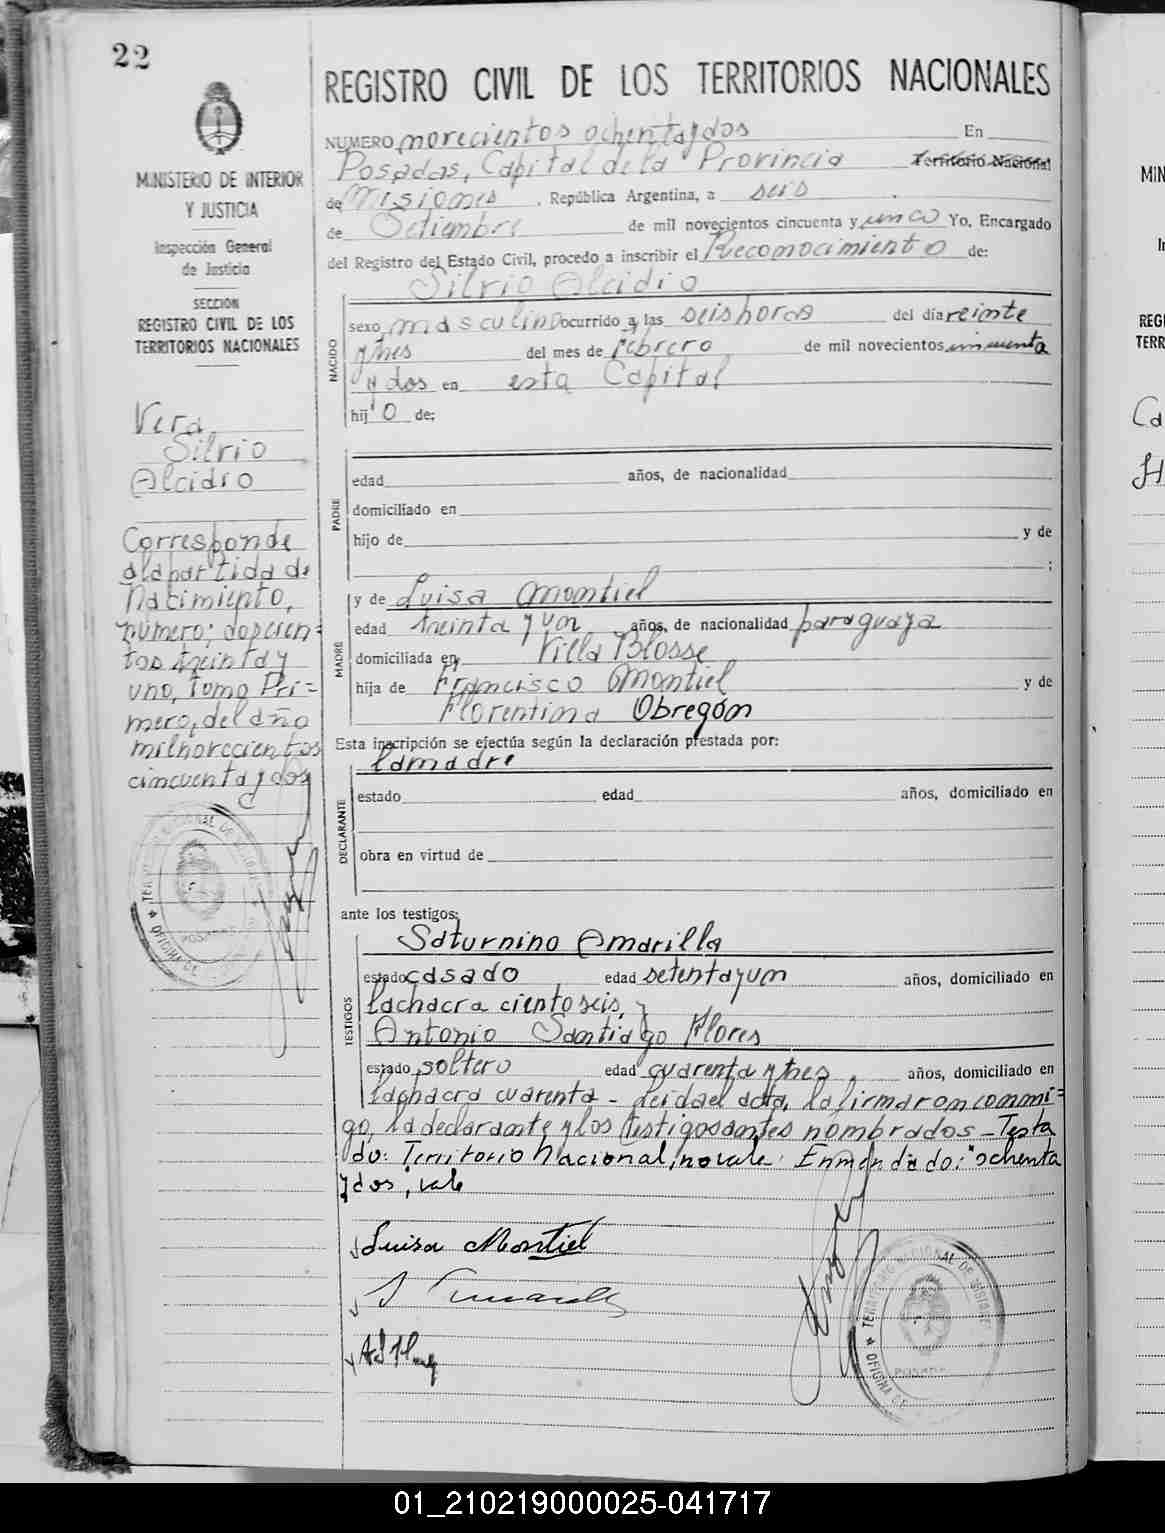 22
MINISTERIO DE INTERIOR
Y JUSTICIA
Inspección General
de Justicia
SECCION
REGISTRO CIVIL DE LOS
TERRITORIOS NACIONALES
Vera
Silvio
Alcidio
Corresponde
a la partida de
Nacimiento,
número: doscien=
tos treinta y
uno, Tomo Pri=
mero, del año
mil novecientos
cincuenta y dos
REGISTRO CIVIL DE LOS TERRITORIOS NACIONALES
NUMERO novecientos ochenta y dos En
Posadas, Capital de la Provincia Territorio Nacional
de Misiones, República Argentina, a seis
de Setiembre de mil novecientos cincuenta y unco Yo, Encargado
del Registro del Estado Civil, procedo a inscribir el Reconocimiento de:
Silvio Alcidio
NACIDO
sexo masculino ocurrido a las seis horas del día veinte
y tres del mes de febrero de mil novecientos cincuenta
y dos en esta Capital
hijo de:
PADRE
edad años, de nacionalidad
domiciliado en
hijo de y de
;
MADRE
y de Luisa Montiel
edad treinta y un años, de nacionalidad paraguaya
domiciliada en Villa Blosse
hija de Francisco Montiel y de
Florentina Obregón
Esta inscripción se efectúa según la declaración prestada por:
la madre
DECLARANTE
estado edad años, domiciliado en
obra en virtud de
ante los testigos:
TESTIGOS
Saturnino Amarilla
estado casado edad setenta y un años, domiciliado en
la chacra ciento seis, y
Antonio Santiago Flores
estado soltero edad cuarenta y tres, años, domiciliado en
la chacra cuarenta - Leida el acta, la firmaron conmi=
go, la declarante y los testigos antes nombrados - Testa
do: Territorio Nacional, no vale. Enmendado: "ochenta
y dos", vale
Luisa Montiel
POSADAS
OFICINA DE
01_210219000025-041717